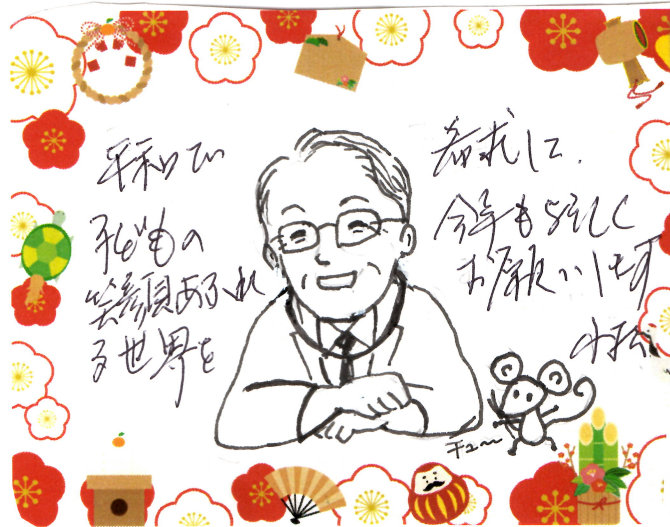 平和で
子どもの
笑顔あふれ
る世界を
希求して、
今年もよろしく
お願いします
小松
チュ〜